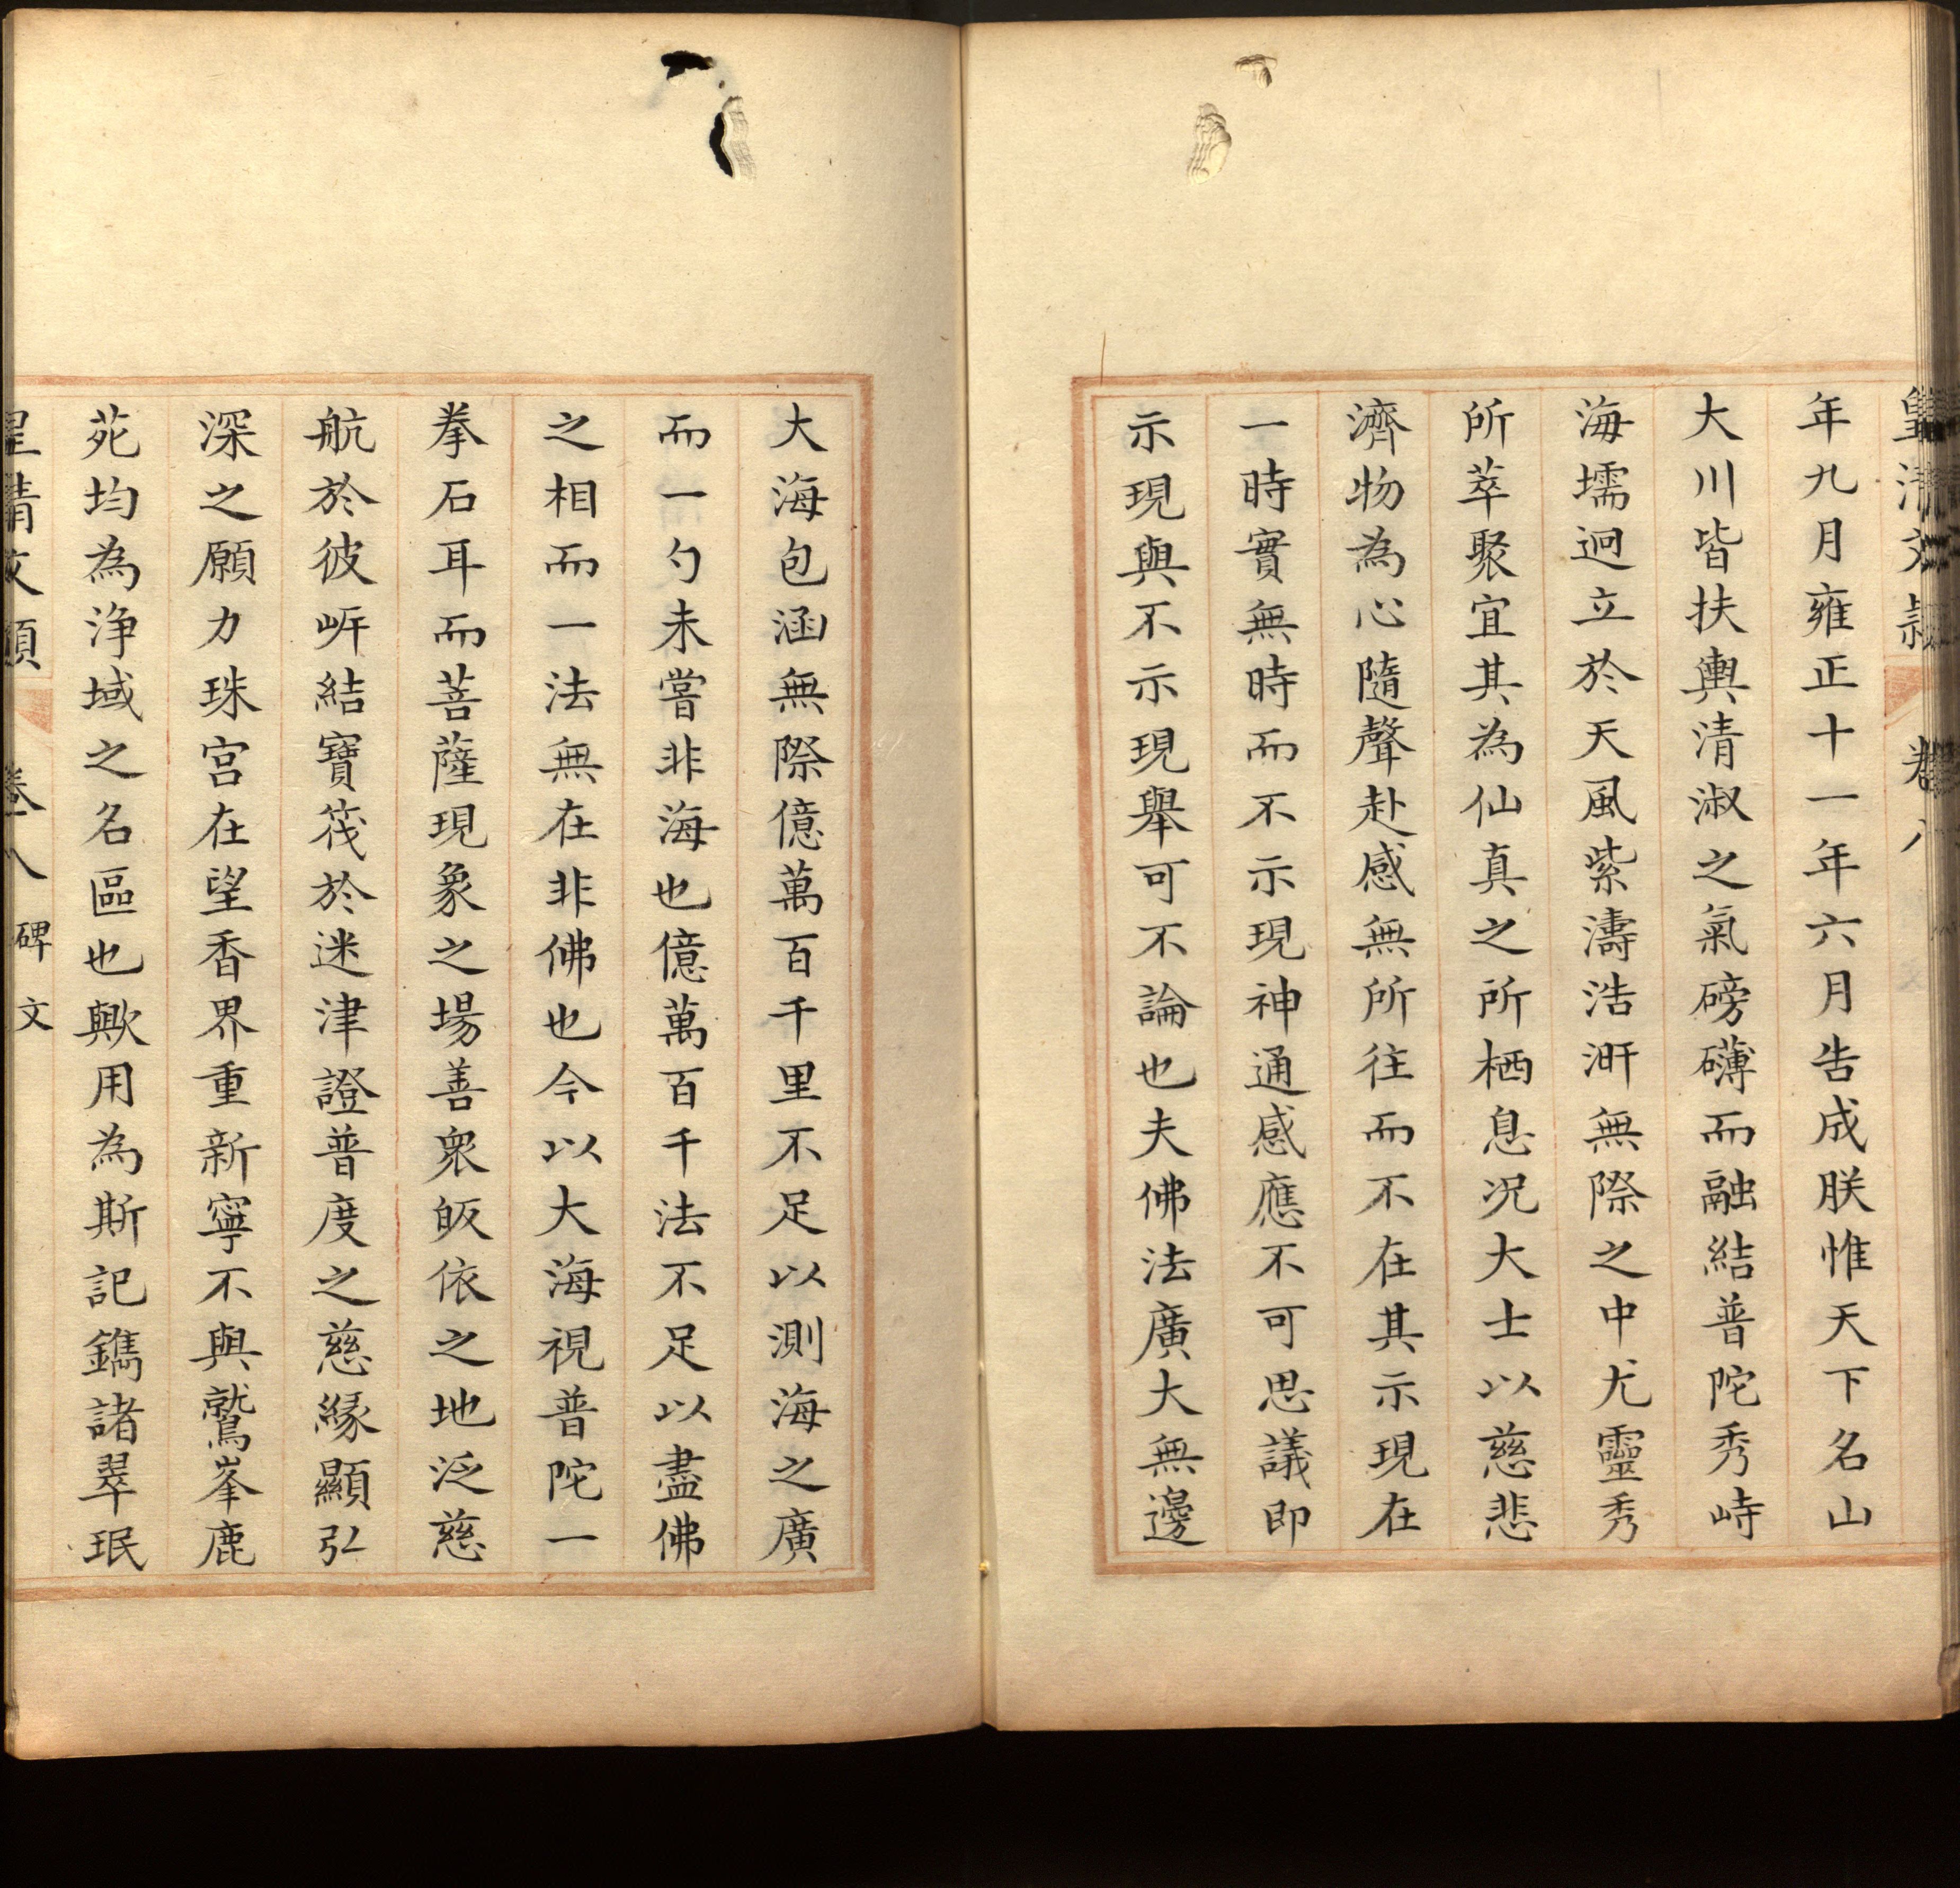 皇清文穎 卷八
年九月雍正十一年六月告成朕惟天下名山
大川皆扶輿清淑之氣磅礴而融結普陀秀峙
海壖迥立於天風紫濤浩汧無際之中尤靈秀
所萃聚宜其為仙真之所栖息况大士以慈悲
濟物為心隨聲赴感無所往而不在其示現在
一時實無時而不示現神通感應不可思議即
示現與不示現舉可不論也夫佛法廣大無邊
大海包涵無際億萬百千里不足以測海之廣
而一勺未嘗非海也億萬百千法不足以盡佛
之相而一法無在非佛也今以大海視普陀一
拳石耳而菩薩現象之場善衆皈依之地泛慈
航於彼岍結寶筏於迷津證普度之慈緣顯弘
深之願力珠宮在望香界重新寧不與鷲峯鹿
苑均為浄域之名區也歟用為斯記鐫諸翠珉
皇清文穎 卷八 碑文